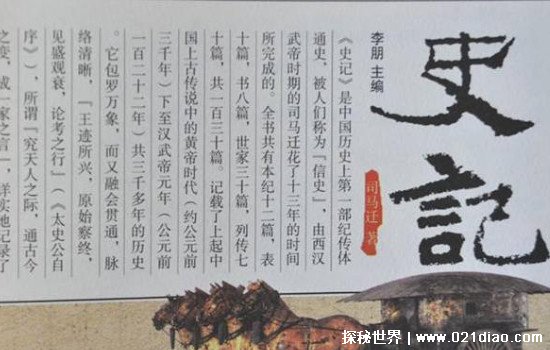 史記
司马迁 著
李朋 主编
《史记》是中国历史上第一部纪传体
通史，被人们称为“信史”，由西汉
武帝时期的司马迁花了十三年的时间
所完成的。全书共有本纪十二篇，表
十篇，书八篇，世家三十篇，列传七
十篇，共一百三十篇。记载了上起中
国上古传说中的黄帝时代（约公元前
三千年）下至汉武帝元年（公元前
一百二十二年）共三千多年的历史
。它包罗万象，而又融会贯通，脉
络清晰，“王迹所兴，原始察终，
见盛观衰，论考之行”（《太史公自
序》），所谓“究天人之际，通古今
之变，成一家之言”，详实地记录了
探秘世界 | www.021diao.com